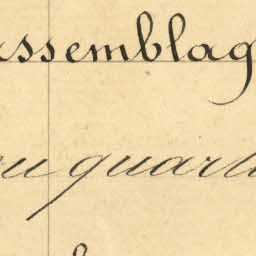 assemblag
au quart